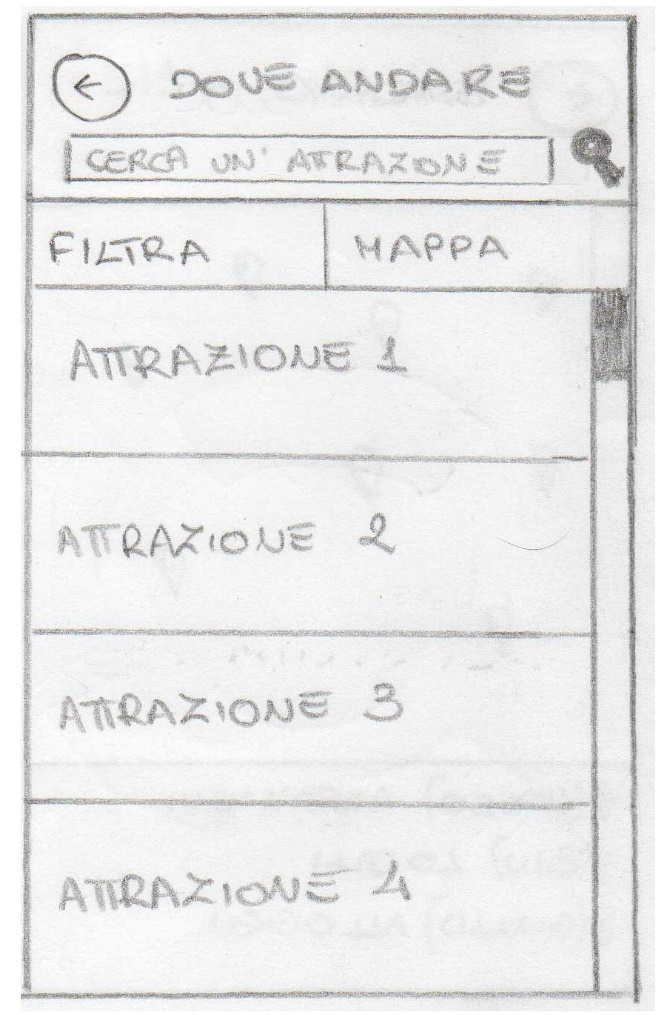 DOVE ANDARE
CERCA UN' ATTRAZIONE
FILTRA
MAPPA
ATTRAZIONE 1
ATTRAZIONE 2
ATTRAZIONE 3
ATTRAZIONE 4